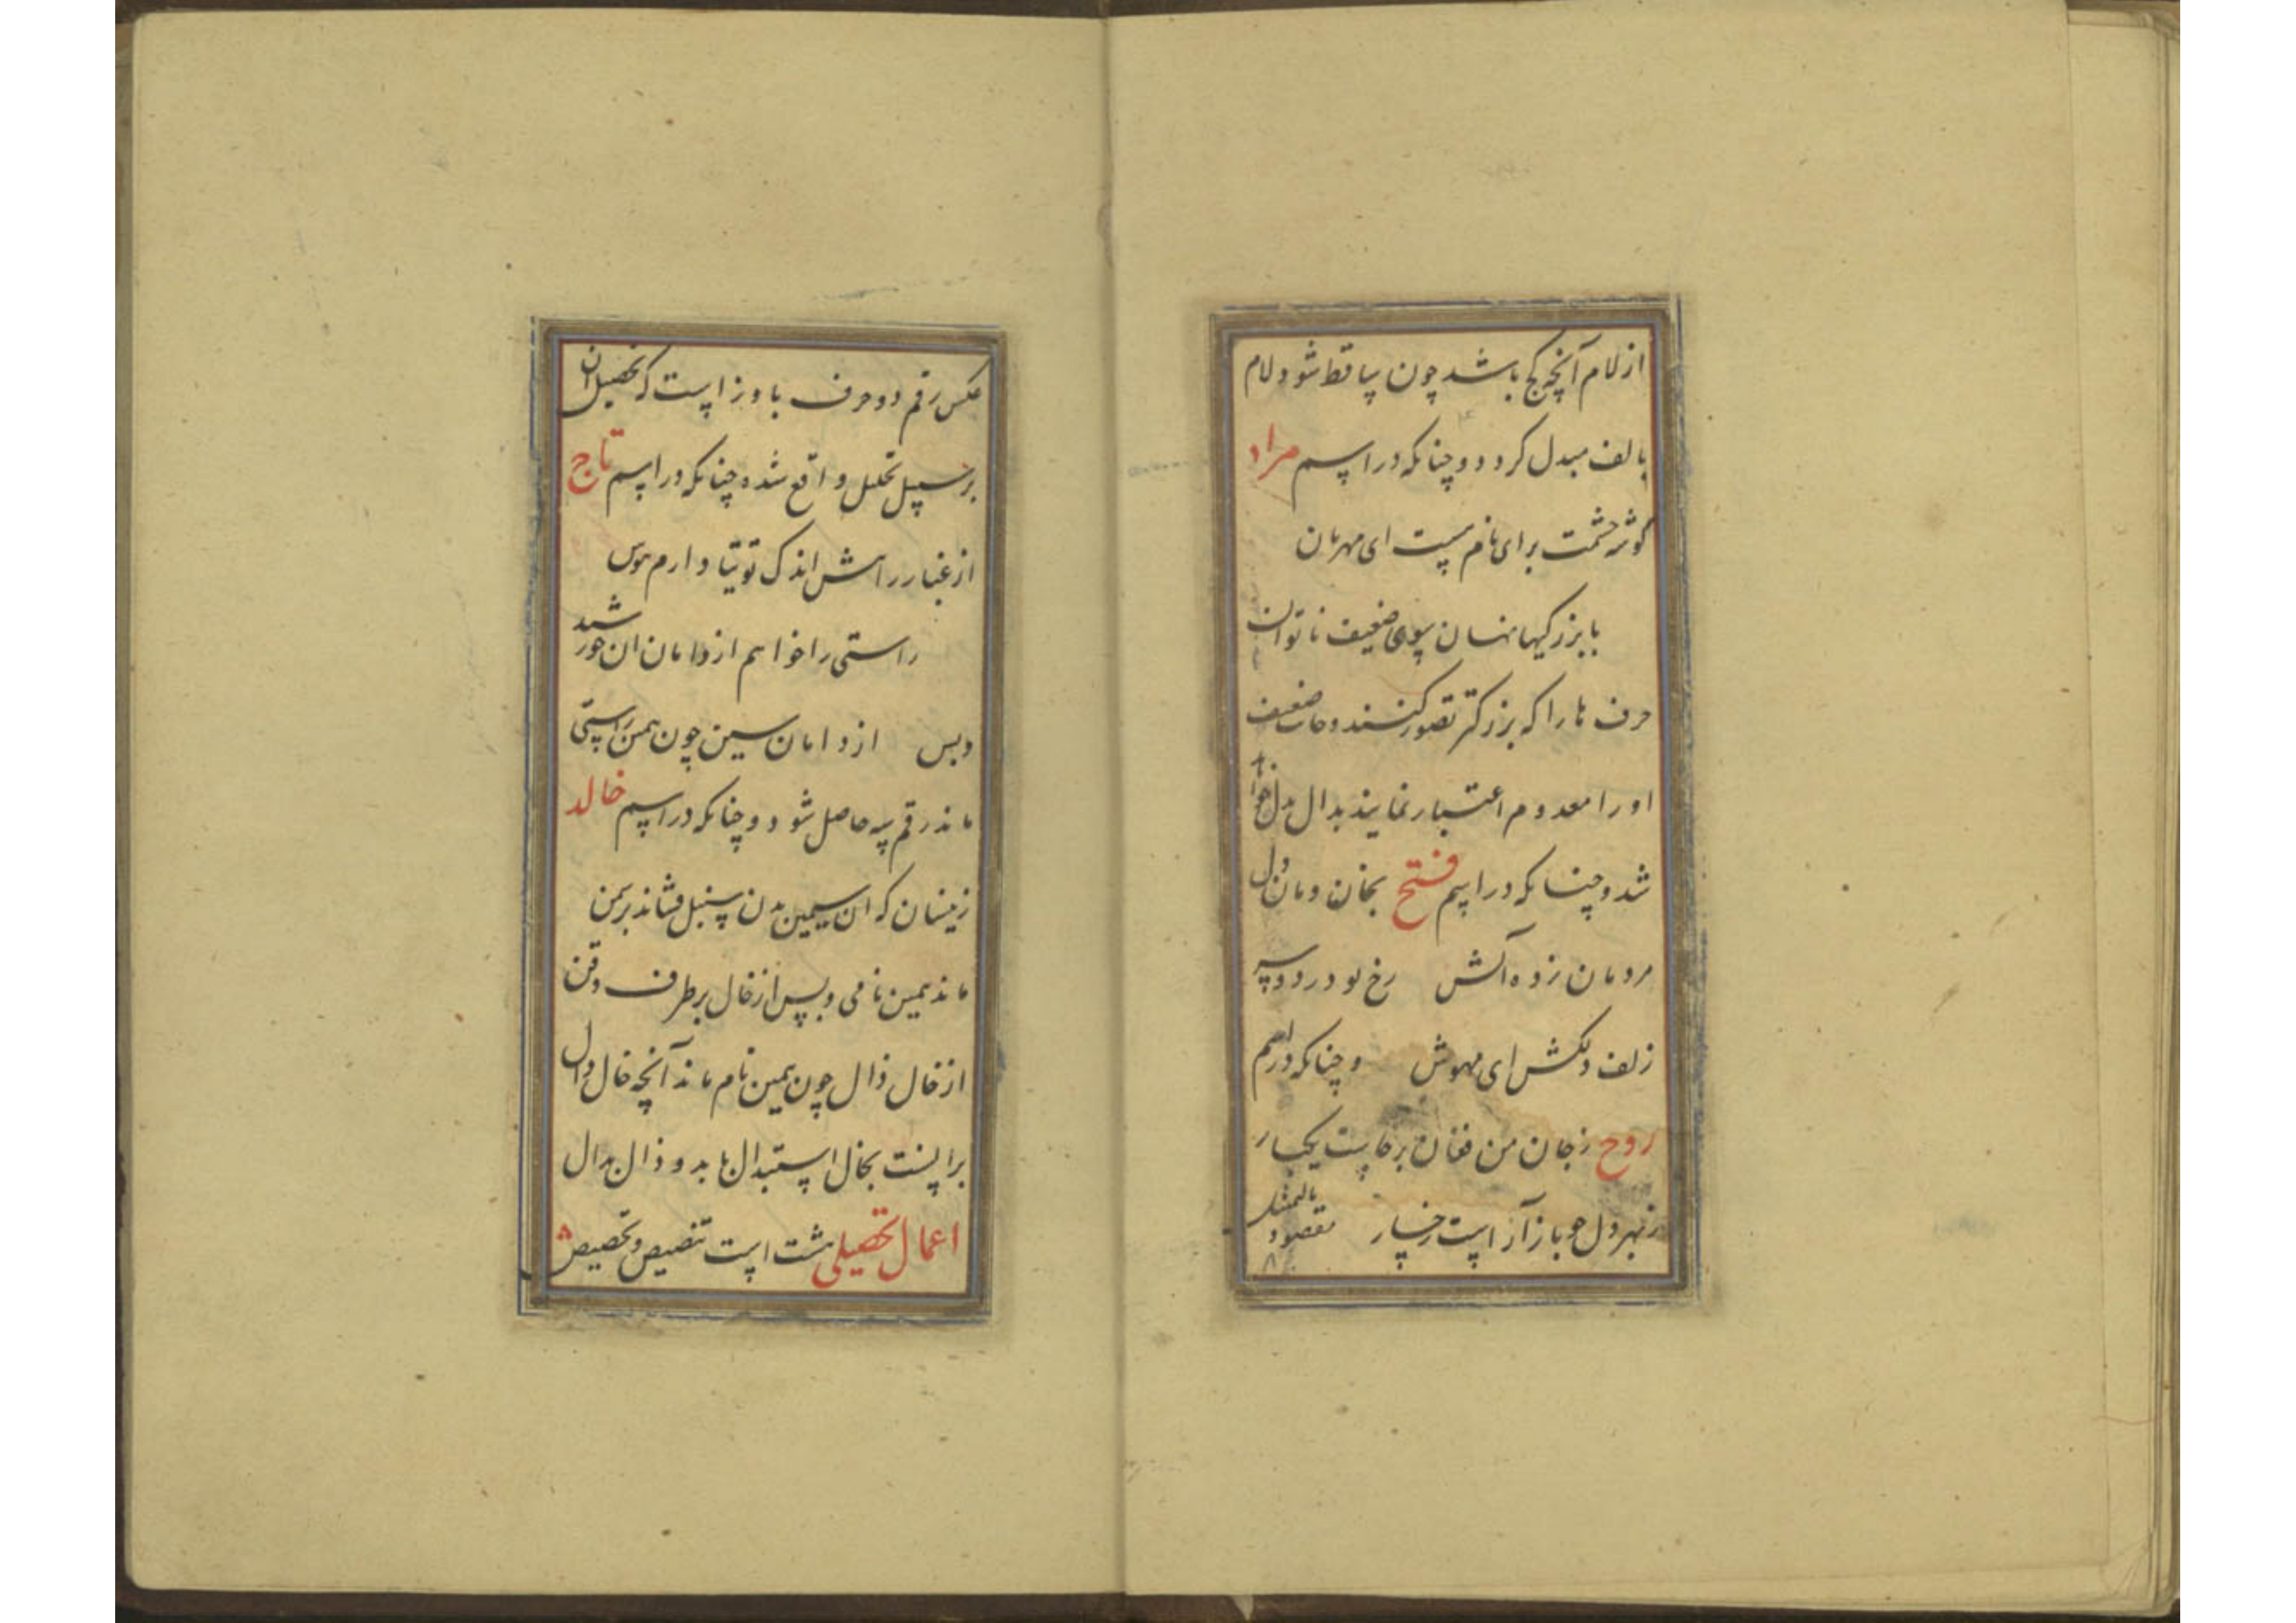 از لام آنچه کج باشد چون ساقط شود لام
بالف مبدل کردد و چنانکه در اسم مراد
گوشه چشمت برای نام بست ای مهربان
با بزرکیها نهان سوی ضعیف ناتوان
حرف ها را که بزرکتر تصور کنند و حاء ضعیف
او را معدوم اعتبار نمایند بدال بدل
شد و چنانکه در اسم فتح بخان و مان دل
مردمان زده آتش رخ تو در دو سر
زلف دلکش ای مهوش و چنانکه در اسم
روح ز جان من فغان برخاست یکبار
ز بهر دل چو باز آراست رخسار مقصود بالتمثیل
عکس رقم دو حرف با و زا است که تحصیل آن
بر سبیل تحلیل واقع شده چنانکه در اسم تاج
از غبار راهش اندک توتیا دارم هوس
راستی را خواهم از دامان آن خورشید
و بس از دامان سین چون همین راستی
ماند رقم سه حاصل شود و چنانکه در اسم خالد
زینسان که آن سیمین بدن سنبل فشاند بر سمن
ماند همین نامی و بس از خال بر طرف ذقن
از خال ذال چون همین نام ماند آنچه خال دال
بر آنست بخال استبدال یابد و ذال بدال
اعمال تحصیلی هشت است تنصیص و تخصیص